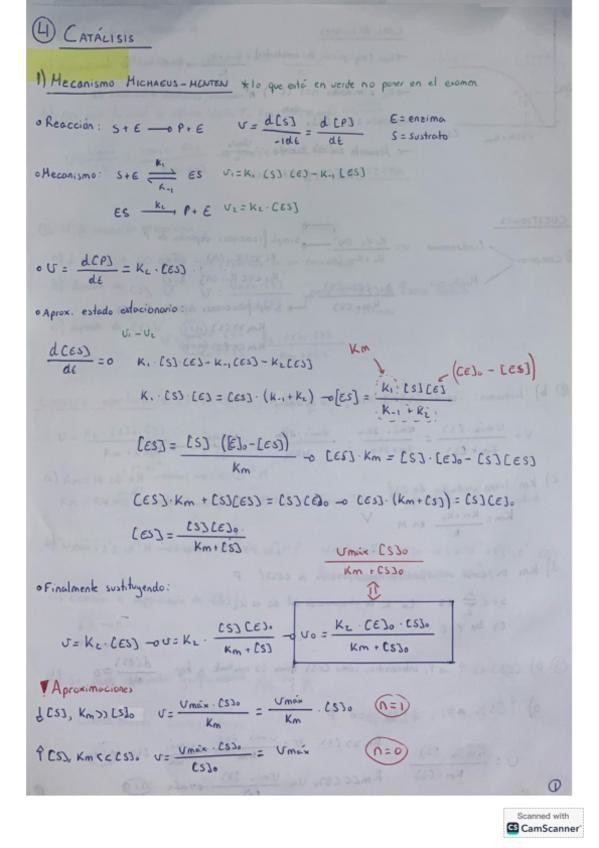 ④ CATÁLISIS
1) MECANISMO MICHAELIS-MENTEN *lo que está en verde no poner en el examen
• Reacción: S+E → P+E v = d[S]/-1dt = d[P]/dt E = enzima
S = sustrato
• Mecanismo: S+E ⇌ ES (K1, K-1) v1 = K1·[S]·[E] - K-1[ES]
ES →(K2) P+E v2 = K2·[ES]
• v = d[P]/dt = K2·[ES]
• Aprox. estado estacionario:
v1 - v2
d[ES]/dt = 0 K1·[S]·[E] - K-1[ES] - K2[ES] Km
K1·[S]·[E] = [ES]·(K-1+K2) → [ES] = K1·[S][E]/(K-1+K2) ([E]0 - [ES])
[ES] = [S]·([E]0-[ES])/Km → [ES]·Km = [S]·[E]0 - [S][ES]
[ES]·Km + [S][ES] = [S][E]0 → [ES]·(Km+[S]) = [S][E]0
[ES] = [S][E]0/(Km+[S])
Vmáx·[S]0/(Km+[S]0)
• Finalmente sustituyendo:
v = K2·[ES] → v = K2·[S][E]0/(Km+[S]) → v0 = K2·[E]0·[S]0/(Km+[S]0)
Aproximaciones
↓[S], Km>>[S]0 v = Vmáx·[S]0/Km = Vmáx/Km·[S]0 (n=1)
↑[S], Km<<[S]0 v = Vmáx·[S]0/[S]0 = Vmáx (n=0)
①
Scanned with
CS CamScanner